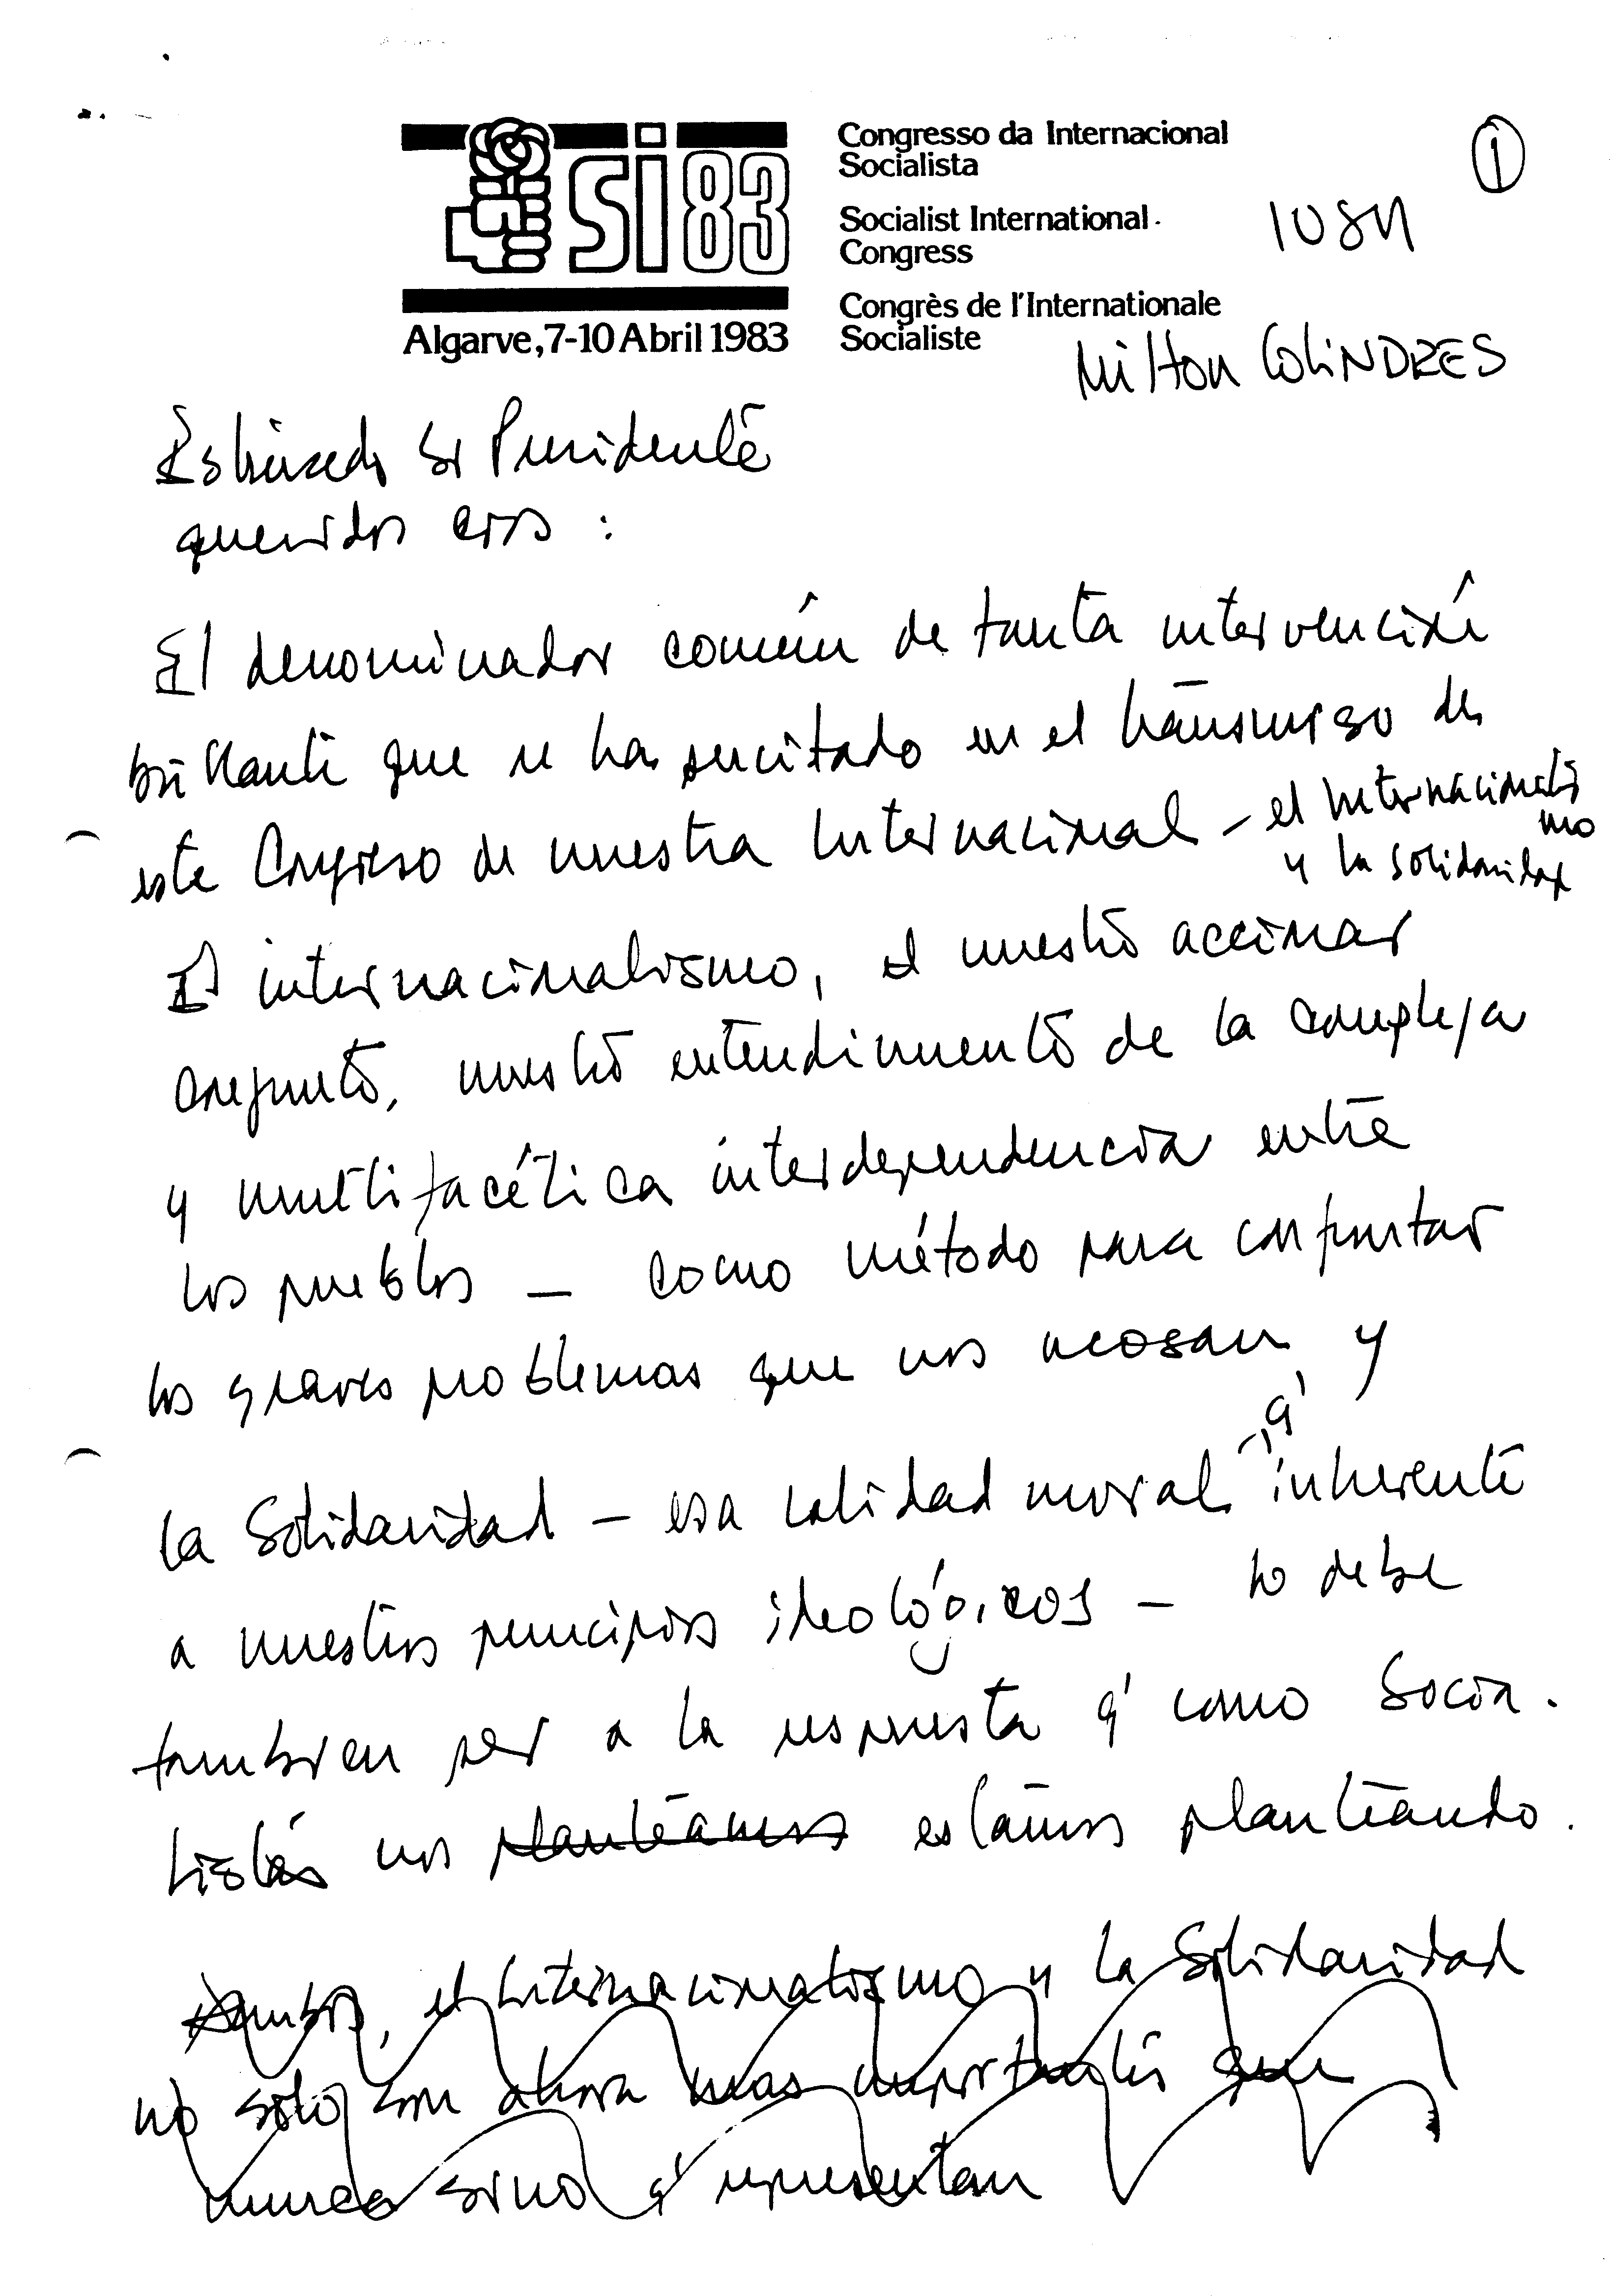 si83
Algarve, 7-10 Abril 1983
Congresso da Internacional
Socialista
Socialist International
Congress
Congrès de l'Internationale
Socialiste
1
Milton COLINDRES
Estimado Sr Presidente
queridos cros :
El denominador común de tanta intervención
brillante que se ha suscitado en el transcurso de
este Congreso de nuestra Internacional – el internacionalis
mo
y la solidaridad
El internacionalismo, el nuestro accionar
conjunto, nuestro entendimiento de la compleja
y multifacética interdependencia entre
los pueblos – como método para confrontar
los graves problemas que nos acosan y
la Solidaridad – esa calidad moral, q' inherente
a nuestros principios ideológicos – lo debe
tambien ser a la respuesta q' como Socia.
listas nos planteamos estamos planteando.
Ambos, el internacionalismo y la Solidaridad
no sólo son ahora mas importantes que
nunca sino q' representan